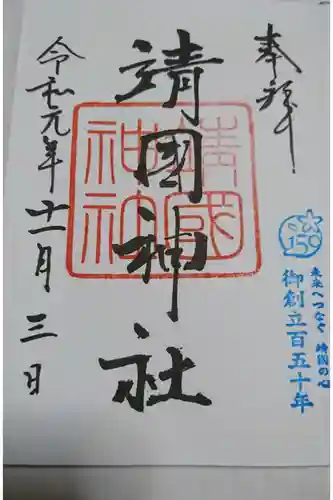 奉拝
靖國神社
靖國
神社
令和元年十一月三日
150
未来へつなぐ 靖國の心
御創立百五十年